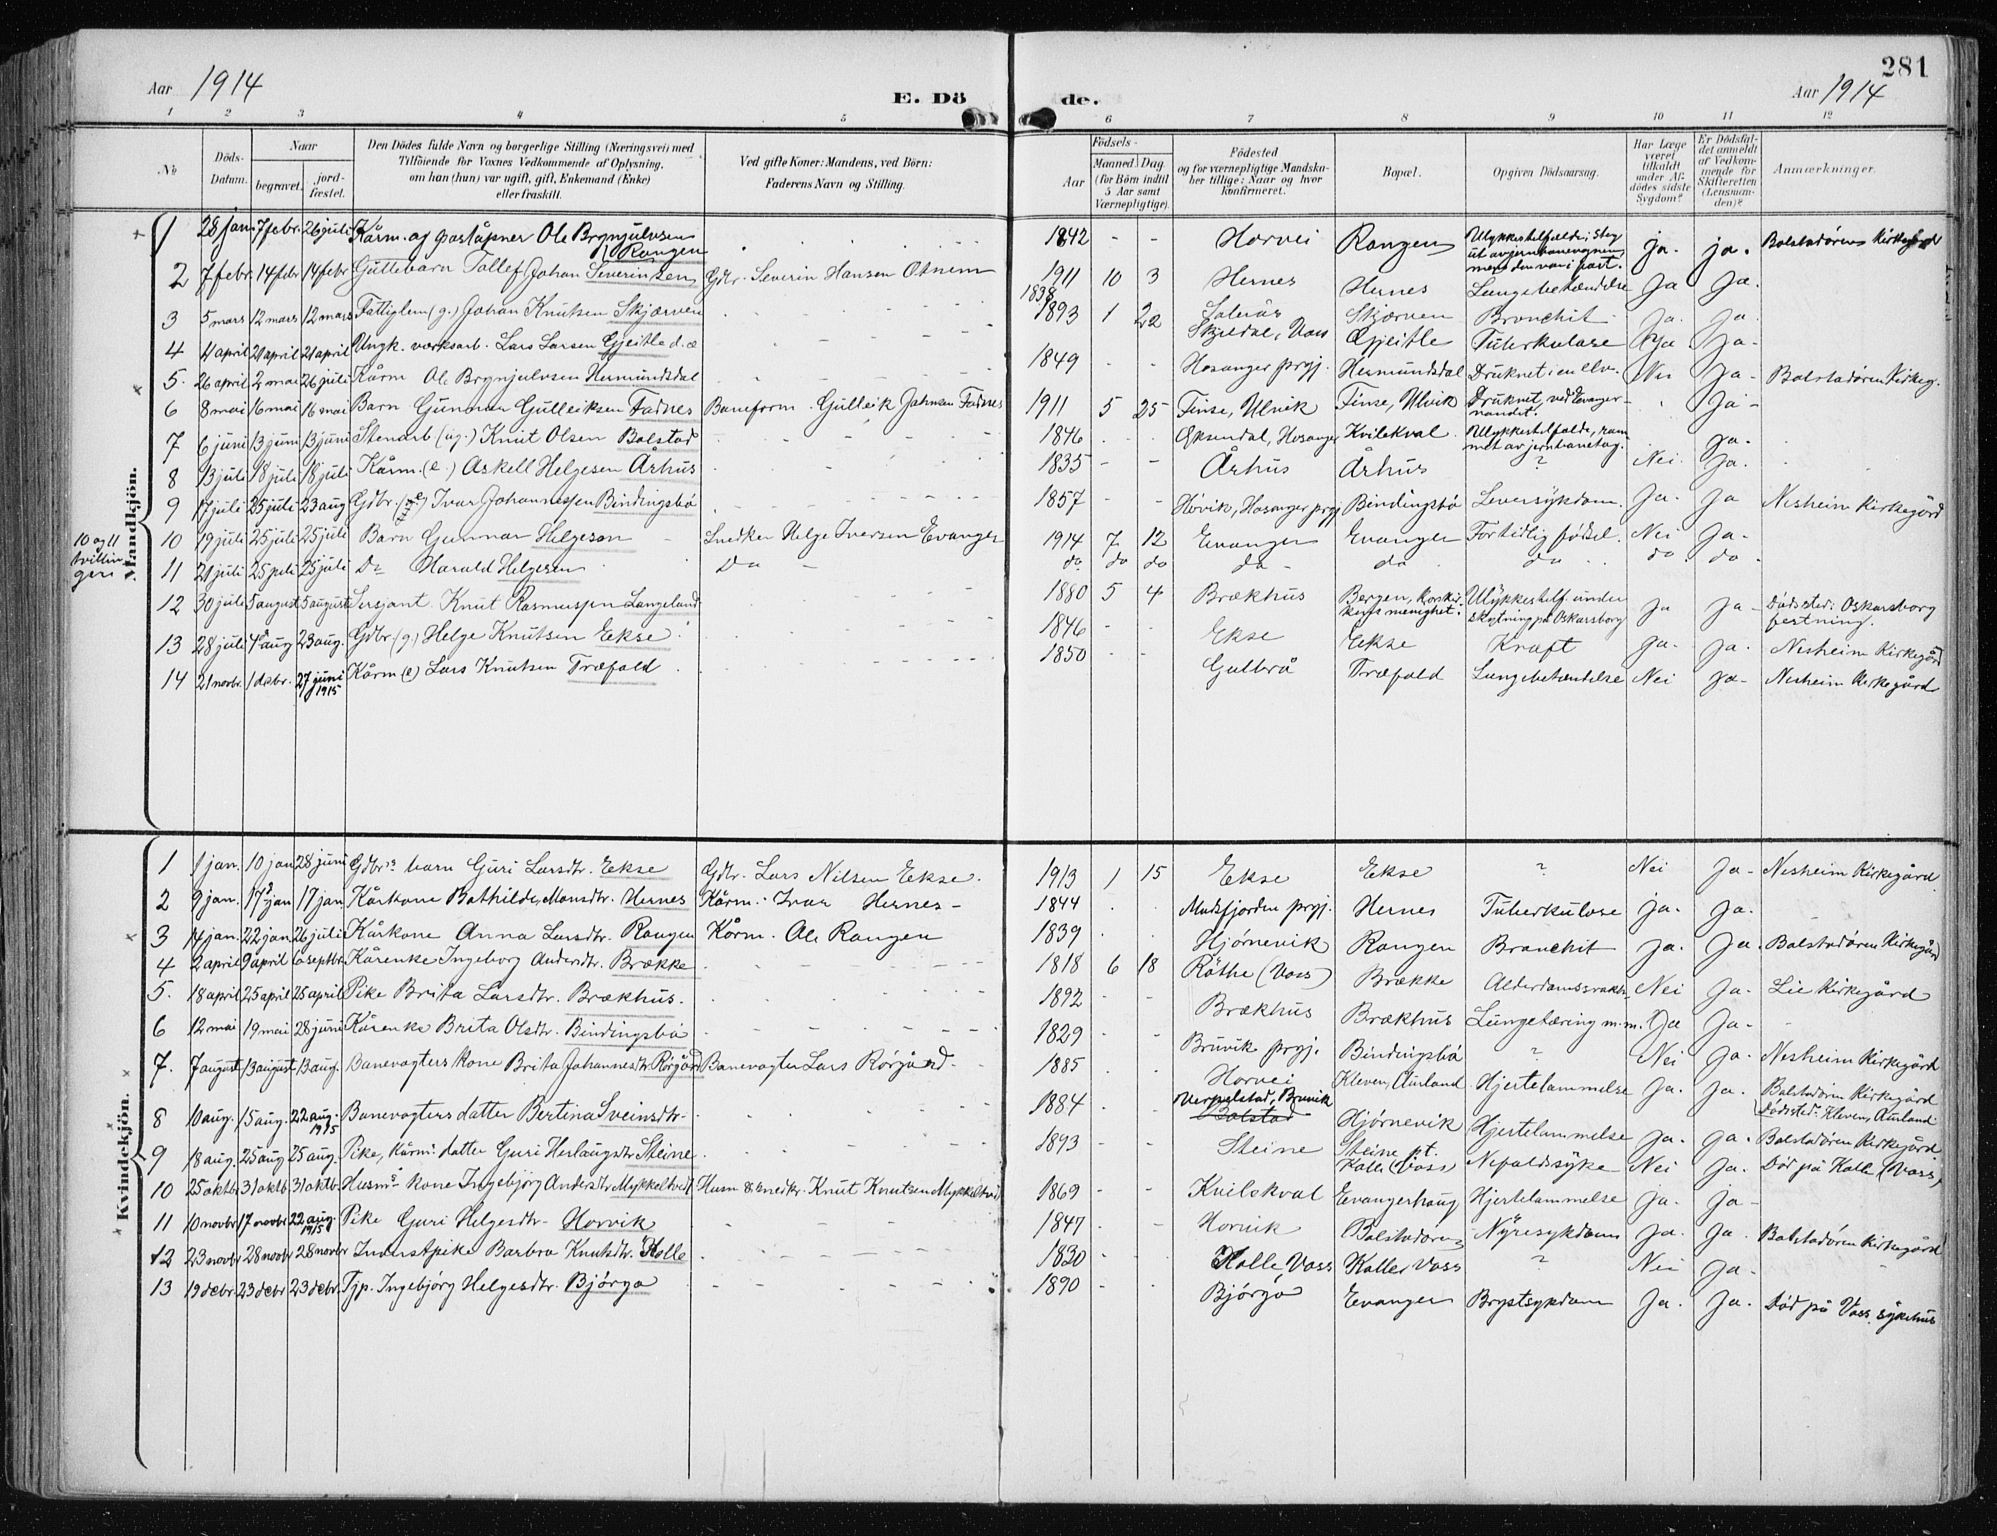 281
Aar 1914
E. Dö
de.
Aar 1914
1 2 3 4 5 6 7 8 9 10 11 12
No
Döds-Datum.
Naar
begravet.
jord-fæstet.
Den Dödes fulde Navn og borgerlige Stilling (Næringsvei) med
Tilföiende for Voxnes Vedkommende af Oplysning,
om han (hun) var ugift, gift, Enkemand (Enke)
eller fraskilt.
Ved gifte Koner: Mandens, ved Börn:
Faderens Navn og Stilling.
Födsels-
Aar
Maaned Dag
(for Börn indtil
5 Aar samt
Værnepligtige).
Födested
og for værnepligtige Mandska-
ber tillige: Naar og hvor
konfirmeret.
Bopæl.
Opgiven Dödsaarsag.
Har Læge
været
tilkaldt
under Af-
dödes sidste
Sygdom?
Er Dödsfal-
det anmeldt
af Vedkom-
mende for
Skifteretten
(Lensman-
den)?
Anmærkninger.
Mandkjön.
1 28 jan. 7 febr. 26 juli Kårm. og poståpner Ole Brynjulvsen Rongen 1842 - - Horvei Rongen Ulykkestilfælde; steg ut av jernbanevognen mens den var i fart. ja. ja. Bolstadøren Kirkegård
2 7 febr. 14 febr 14 febr Guttebarn Tollef Johan Severinsen Gdbr. Severin Hansen Otnem 1911 10 3 Hernes Hernes Lungebetændelse Ja Ja.
3 5 mars 12 mars 12 mars Fattiglem (g.) Johan Knutsen Skjærven 1838 Skjærven Bronchit Ja. Ja
4 11 april 21 april 21 april Ungk. værksarb. Lars Larsen Gjeitle d.æ 1893 1 22 Skjeldal, Voss Gjeitle Tuberkulose Ja Ja-
5. 26 april 2 mai 26 juli Kårm Ole Brynjulvsen Hermundsdal 1849 - - Hosanger prgj. Hermundsdal Druknet i en elv. Nei Ja- Bolstadøren Kirkeg.
6 8 mai 16 mai 16 mai Barn Gunnar Gulleiksen Fadnes Baneform. Gulleik Johnsen Fadnes 1911 5 25 Finse, Ulvik Finse, Ulvik Druknet, ved Evanger-vandet. Ja-
7 6 juni 13 juni 13 juni Stenarb (ug.) Knut Olsen Bolstad 1846 Eksendal, Hosanger Kvilekval Ulykkestilfælde, rammet av jernbanetog. Ja.
8 13 juli 18 juli 18 juli Kårm. (e.) Askell Helgesen Århus 1835 - - Århus Århus ? Nei Ja.
9 17 juli 25 juli 23 aug Gdbr. Ivar Johannessen Bindingsbø 1857 - - Høvik, Hosanger prgj Bindingsbø Leversykdom. Ja. Ja Nesheim Kirkegård
10 og 11 tvillinger
10 19 juli 25 juli 25 juli Barn Gunnar Helgeson Snedker Helge Iversen Evanger 1914 7 12 Evanger Evanger Fortidlig fødsel. Nei Ja-
11 21 juli 25 juli 25 juli Do Harald Helgesen Do do do do do do do do do
12 30 juli 5 august 5 august Sersjant. Knut Rasmussen Langeland 1880 5 4 Brækhus Bergen, Korskirkens menighet. Ulykkestilf. under skytning på Oskarsborg Ja Ja- Dødssted: Oskarsborg festning.
13 28 juli 4 aug 23 aug. Gdbr (g.) Helge Knutsen Ekse 1846 - - Ekse Ekse Kræft Ja- Ja. Nesheim Kirkegård
14 21 novbr. 1 debr. 27 juni 1915 Kårm (e) Lars Knutsen Træfald 1850 - - Gulbrå Træfald Lungebetændelse Nei Ja- Nesheim Kirkegård
Kvindekjön.
1 1 jan. 10 jan 28 juni Gdbr's barn Guri Larsdtr. Ekse Gdbr. Lars Nilsen Ekse. 1913 1 15 Ekse Ekse ? Nei Ja- Nesheim Kirkegård
2 9 jan. 17 jan 17 jan Kårkone Bothilde Monsdtr. Hernes Kårm. Ivar Hernes- 1844 Modfjorden prgj. Hernes Tuberkulose Ja. Ja.
3 14 jan. 22 jan 26 juli Kårkone Anna Larsdtr. Rongen Kårm. Ole Rongen 1839 Hjørnevik Rongen Bronchit Ja. Ja. Bolstadøren Kirkegård
4 2 april 9 april 6 septbr. Kårenke Ingeborg Andersdtr. Brække 1818 6 18 Røthe (Voss) Brække Alderdomssvakh. Nei Ja. Lie Kirkegård
5. 18 april 25 april 25 april Pike Brita Larsdtr. Brækhus. 1892 - - Brækhus Brækhus Lungetæring m.m. Ja Ja-
6 12 mai 19 mai 28 juni Kårenke Brita Olsdtr. Bindingsbø 1829 - - Bruvik prgj. Bindingsbø ? Nei Ja. Nesheim Kirkegård
7. 7 august 13 august 13 aug. Banevogters kone Brita Johannesdtr Rørgård Banevogter Lars Rørgård- 1885 - - Horvei Kleven, Aurland Hjertelammelse Ja. Ja. Bolstadøren Kirkegård Dødssted: Kleven, Aurland
8 10 aug. 15 aug. 22 aug. 1915 Banevogters datter Bertina Sveinsdtr- 1884 - - Verpelstad, Bruvik Bolstad Hjørnevik Hjertelammelse Ja. Ja. Bolstadøren Kirkegård
9 18 aug. 25 aug 25 aug. Pike, Kårm. datter Guri Herlaugsdtr Steine 1893 Steine Steine pt. Kolle (Voss) Nefaldssyke Nei Ja. Død på Kolle (Voss)
10 25 oktbr. 31 oktb. 31 oktb. Husm's kone Ingebjørg Andersdtr Mykkeltvedt Husm & snedkr. Knut Knutsen Mykkeltvedt 1869 - - Kvilekval Evangerhaug Hjertelammelse Ja. Ja-
11 10 novbr 17 novbr 22 aug. 1915 Pike Guri Helgesdtr- Horvik 1847 - - Horvik Bolstadøren Nyresykdom Ja. Ja. Bolstadøren Kirkegård
12 23 novbr 28 novbr 28 novbr Inderstpike Barbra Knutsdtr. Kolle 1830 - - Kolle Voss Kolle Voss ? Nei Ja-
13 19 debr. 23 debr 23 debr. Tjp. Ingebjørg Helgesdtr. Bjørgo 1890 - - Bjørgo Evanger Brystsykdom Ja. Ja. Død på Voss sykehus